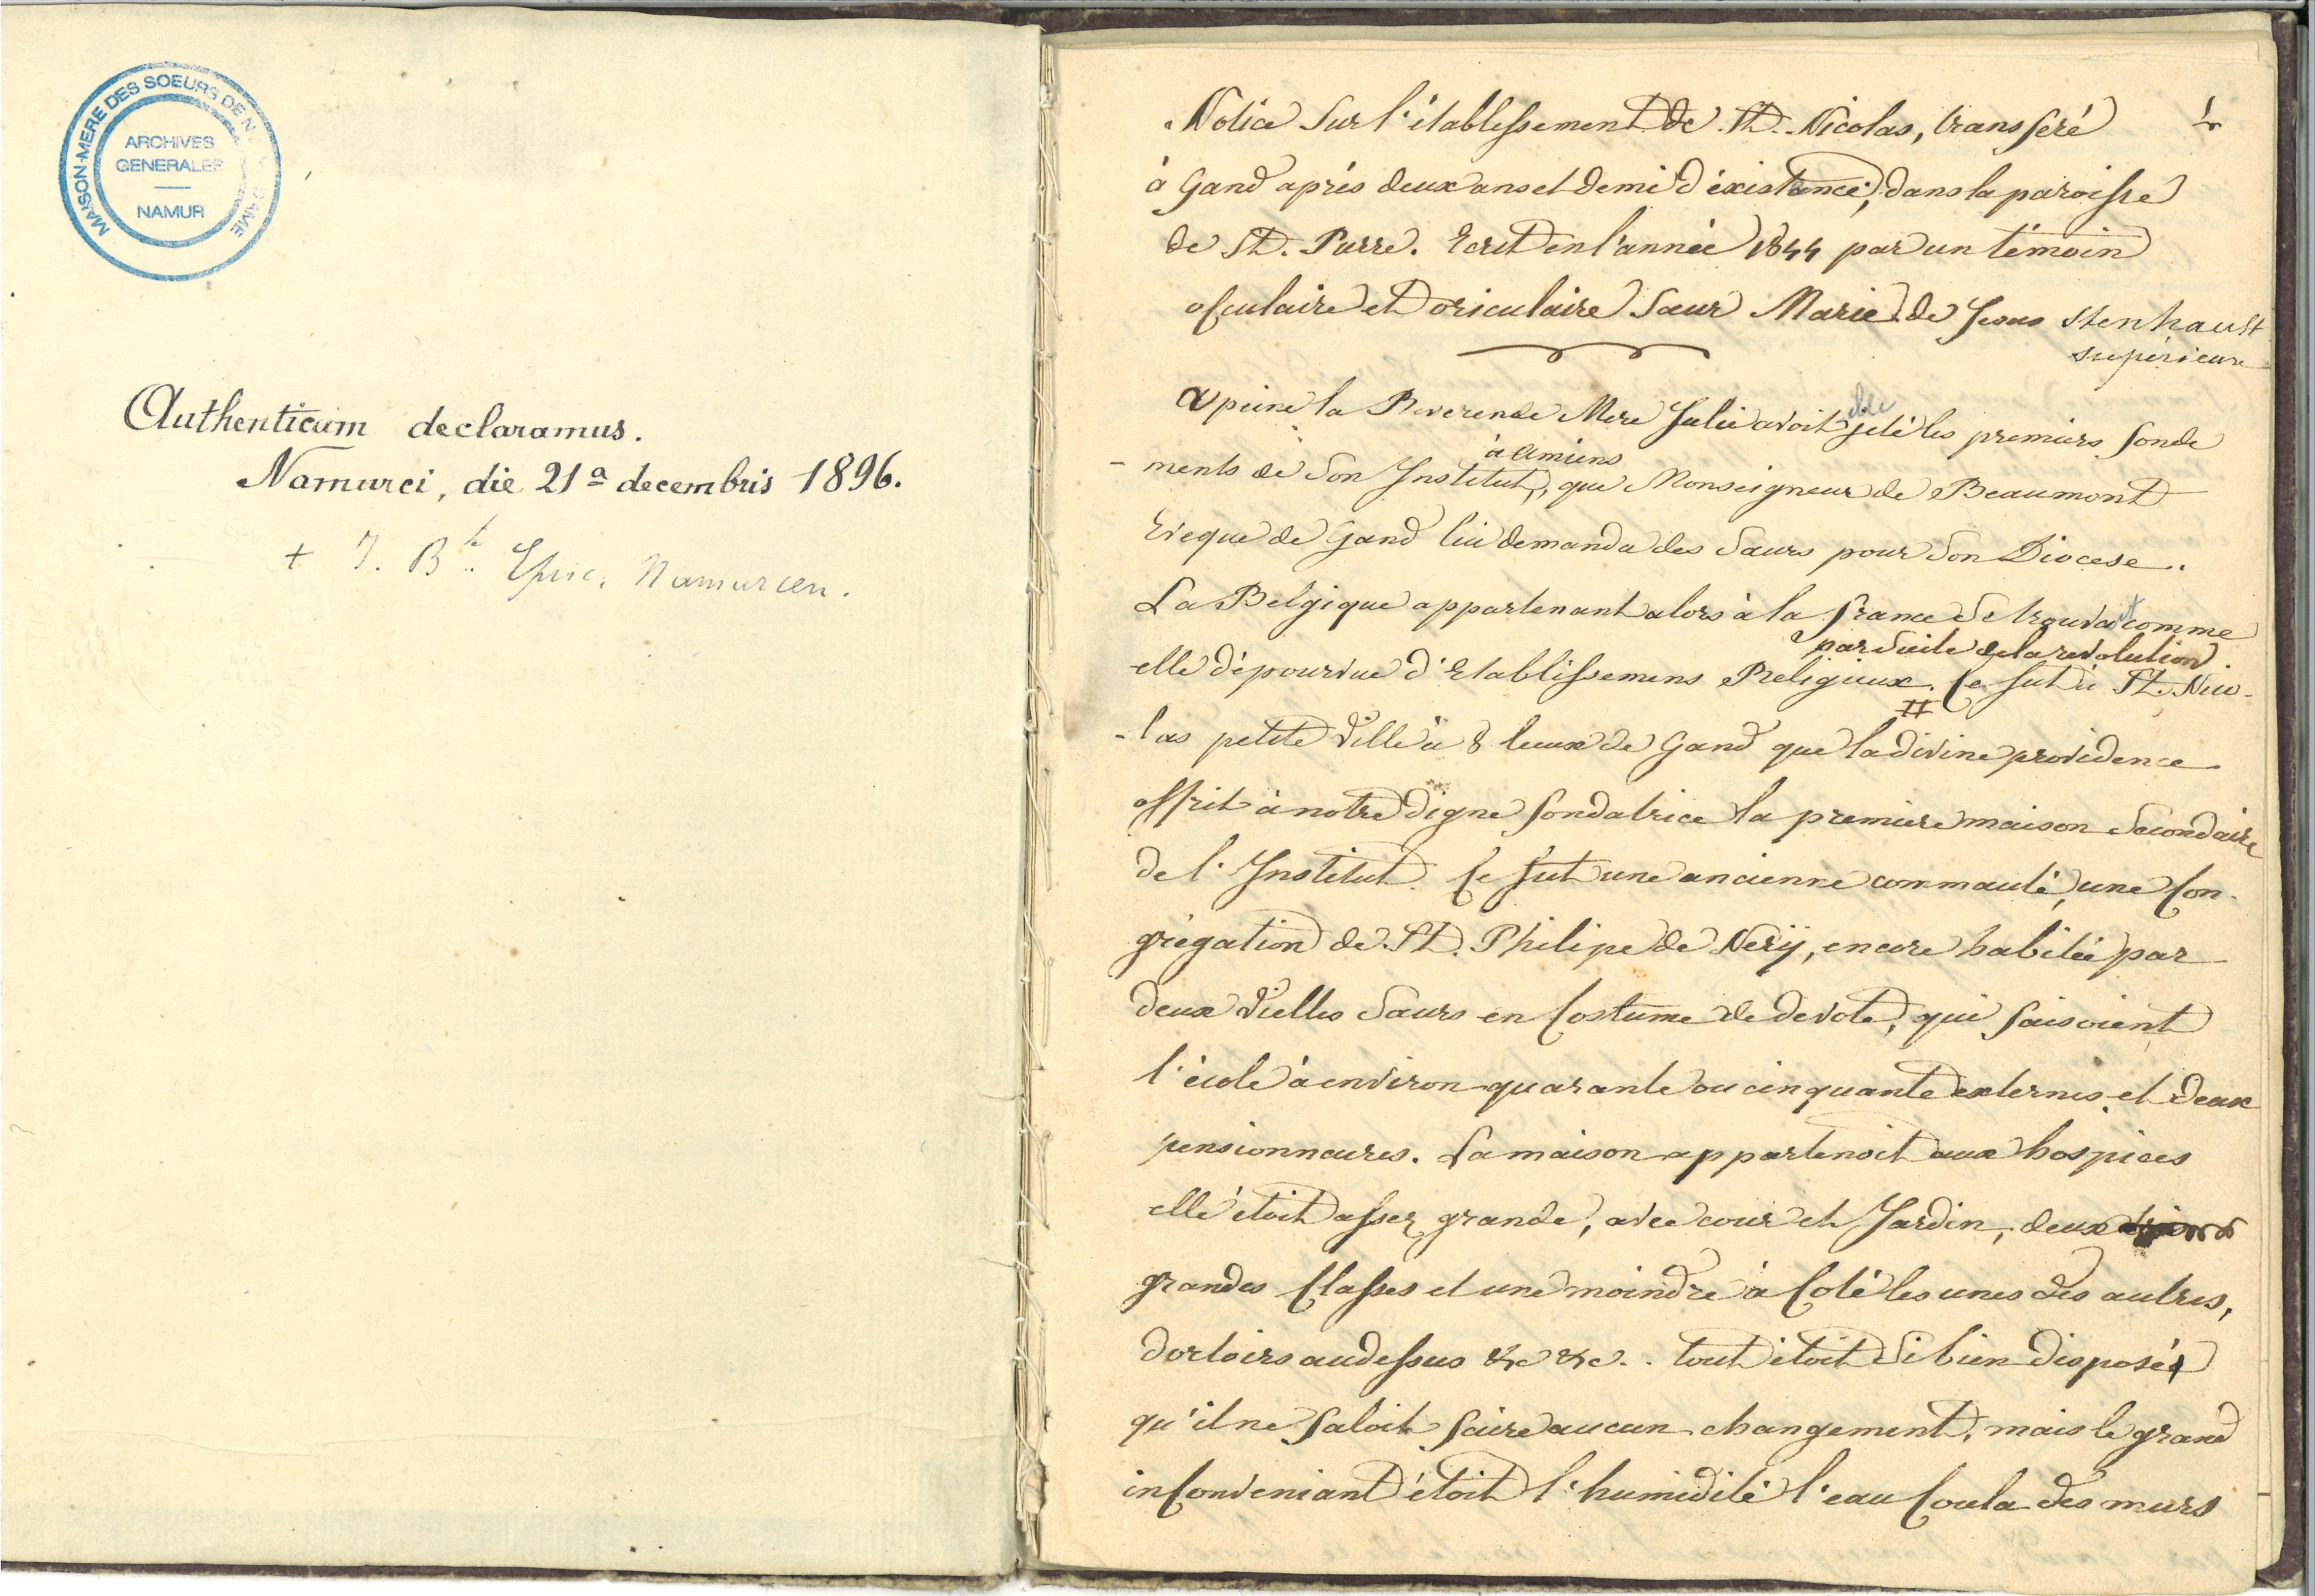 MAISON-MERE DES SOEURS DE N. DAME
ARCHIVES
GENERALES
NAMUR
Authenticum declaramus.
Namurci, die 21ª decembris 1896.
+ J. Bte Episc. Namurcen.
Notice sur l'établissement de St. Nicolas, transferé
1
à Gand après deux ans et demi d'éxistence, dans la paroisse
de St. Pierre. Ecrit en l'année 1844 par un témoin
osculaire et oriculaire Sœur Marie de Jesus Stenhault
supérieure
apeine la Reverende Mere Julie avoit elle jeté les premiers fonde
-ments de son Institut, à Amiens que Monseigneur de Beaumont
Eveque de Gand lui demanda des Sœurs pour son Diocese.
La Belgique appartenant alors à la france se trouvait comme
par suite de la revolution.
elle dépourvue d'Etablissemens Religieux. Ce fut à St. Nico-
-las petite Ville à 8 lieux de Gand que la divine providence
offrit à notre digne fondatrice la premiere maison Secondaire
de l'Institut. Ce fut une ancienne commauté, une Con-
grégation de St. Philipe de Nerÿ, encore habitée par
deux vielles Sœurs en Costume de devote, qui faisoient
l'école à environ quarante ou cinquante externes et deux
pensionneures. La maison appartenoit aux hospices
elle étoit assez grande, avec cour et Jardin, deux
grandes Classes et une moindre à Coté les unes des autres,
dortoirs audessus &c &c.. tout étoit si bien disposé
qu'il ne faloit faire aucun changement, mais le grand
inConveniant étoit l'humidité l'eau Coula des murs